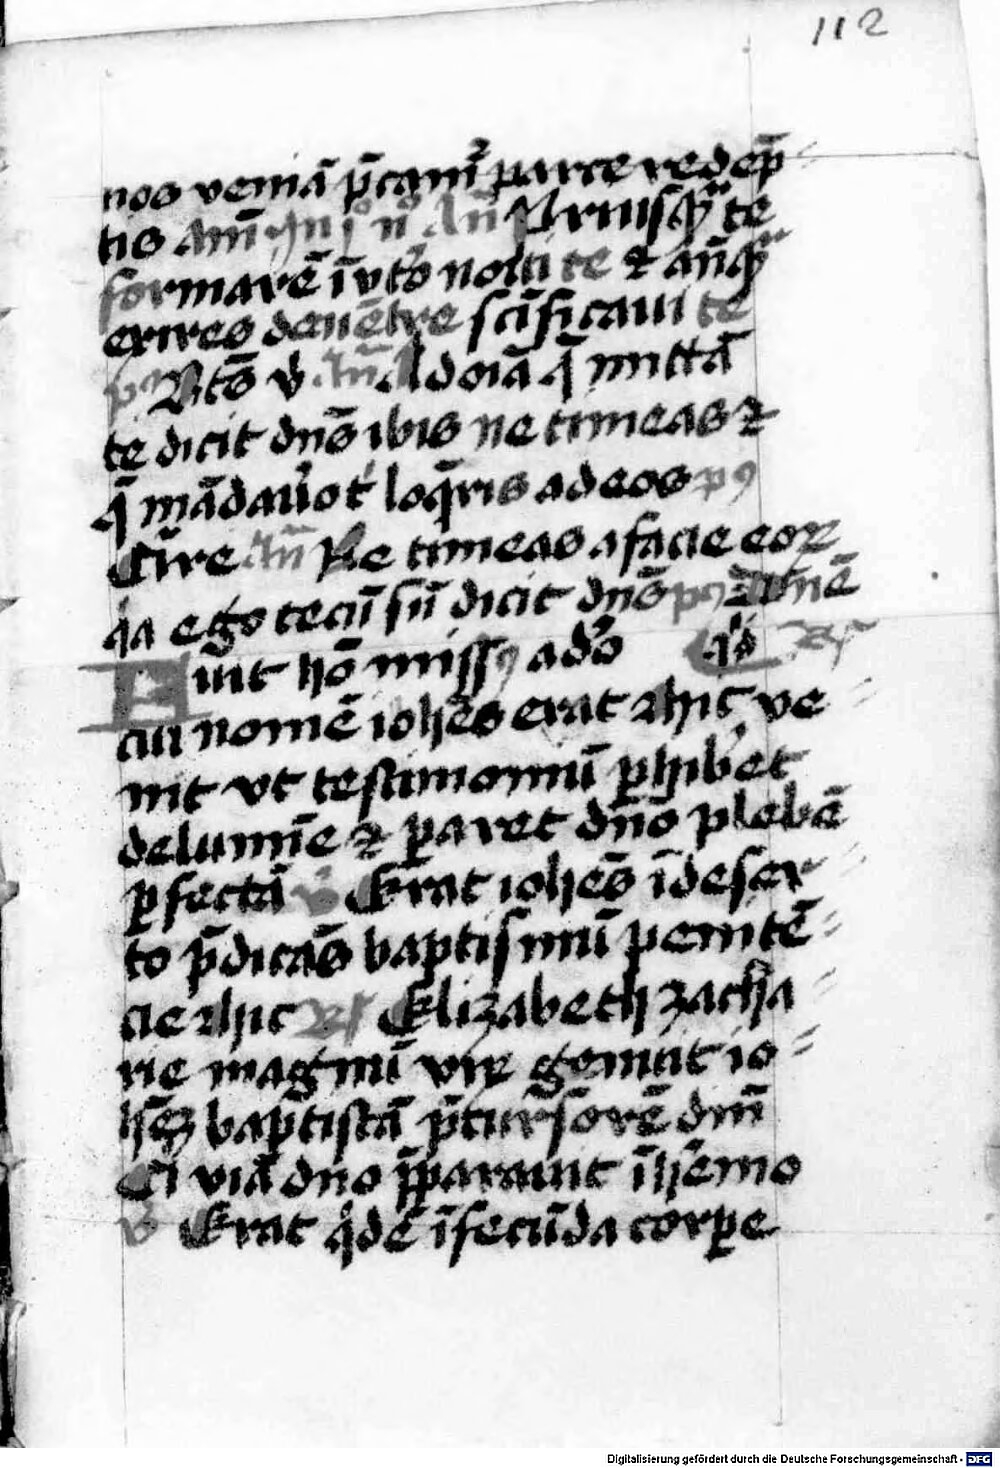 112
nos veniā p̄camr̄ parce redep̄
tis Amē In j nͦ Añ Priusq̄ȝ te
formarē ī vtͦo novi te ⁊ añq̄ȝ
exires de uētre scīficaui te
pͥ Btͤs v̄ Añ Ad oīa q̄ mittā
te dicit dn̄s ibis ne timeas ⁊
q̄ mādauͦo tͥ loq̄ris ad eos pꝰ
Cūre Añ Ne timeas a facie eoꝝ
qͥa ego tecū sū dicit dn̄s pꝰ
Fuit hō missꝰ a dͦo
cui nomē ioh̄es erat ⁊ hic ve
nit vt testimoniū ꝑhibet
de lumīe ⁊ ꝑaret dn̄o plebē
ꝑfectā v̄ Erat ioh̄es ī deser
to p̄dicās baptismū penitē
cie ⁊ hic R̸ Elizabeth zacha
rie magni vir̄ genuit io
h̄eȝ baptistā p̄cursorē dn̄i
Qi viā dn̄o p̄parauit ī h̄emo
v̄ Erat qͥdē ī secūda corꝑe